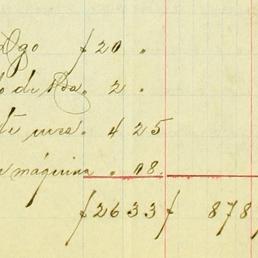 Dgo $20 "
o de Rda. 2 "
te uvas. 4 25
a máquina " 08.
$26 33 $ 878